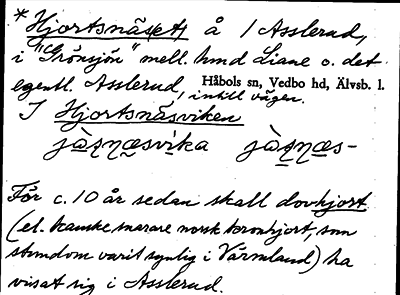 *Hjortsnäs(et) å 1 Asslerud,
i "Grönsjön" mell. hmd Liane o. det
egentl. Asslerud, intill vägen.
Håbols sn, Vedbo hd, Älvsb. l.
I Hjortsnäsviken
För c. 10 år sedan skall dovhjort
(el. kanske snarare norsk kronhjort, som
stundom varit synlig i Värmland) ha
visat sig i Asslerud.